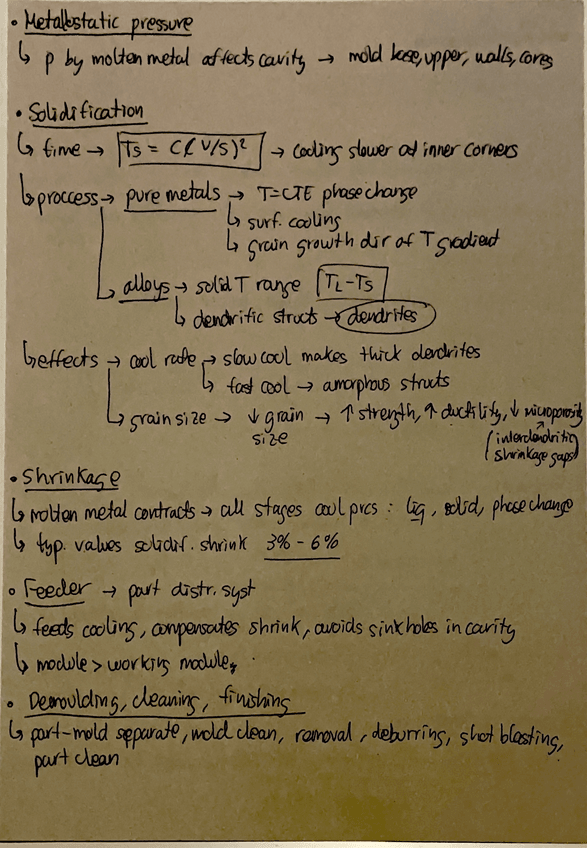 • Metallostatic pressure
↳ p by molten metal affects cavity → mold base, upper, walls, cores
• Solidification
↳ time → Ts = C(V/S)² → cooling slower at inner corners
↳ proccess → pure metals → T=CTE phase change
↳ surf. cooling
↳ grain growth dir of T gradient
alloys → solid T range TL-TS
↳ dendritic structs → dendrites
↳ effects → cool rate → slow cool makes thick dendrites
↳ fast cool → amorphous structs
↳ grain size → ↓ grain size → ↑ strength, ↑ ductility, ↓ microporosity
(interdendritic shrinkage gaps)
• Shrinkage
↳ molten metal contracts → all stages cool prcs : liq, solid, phase change
↳ typ. values solidif. shrink 3% - 6%
• Feeder → part distr. syst
↳ feeds cooling, compensates shrink, avoids sinkholes in cavity
↳ module > working module
• Demoulding, cleaning, finishing
↳ part-mold separate, mold clean, removal, deburring, shot blasting,
part clean